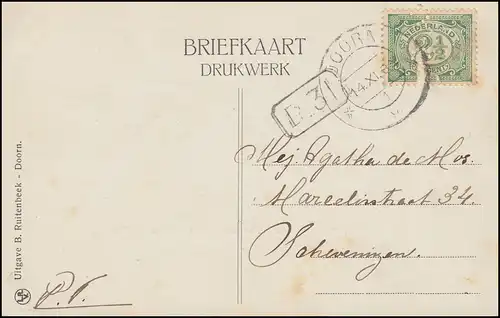 BRIEFKAART
DRUKWERK
DOORN
14.XI.
1
NEDERLAND
2½
CENT
D.31
Mej. Agatha de Mos.
Marcelisstraat 34.
Scheveningen.
P.V.
Uitgave B. Ruitenbeek - Doorn.